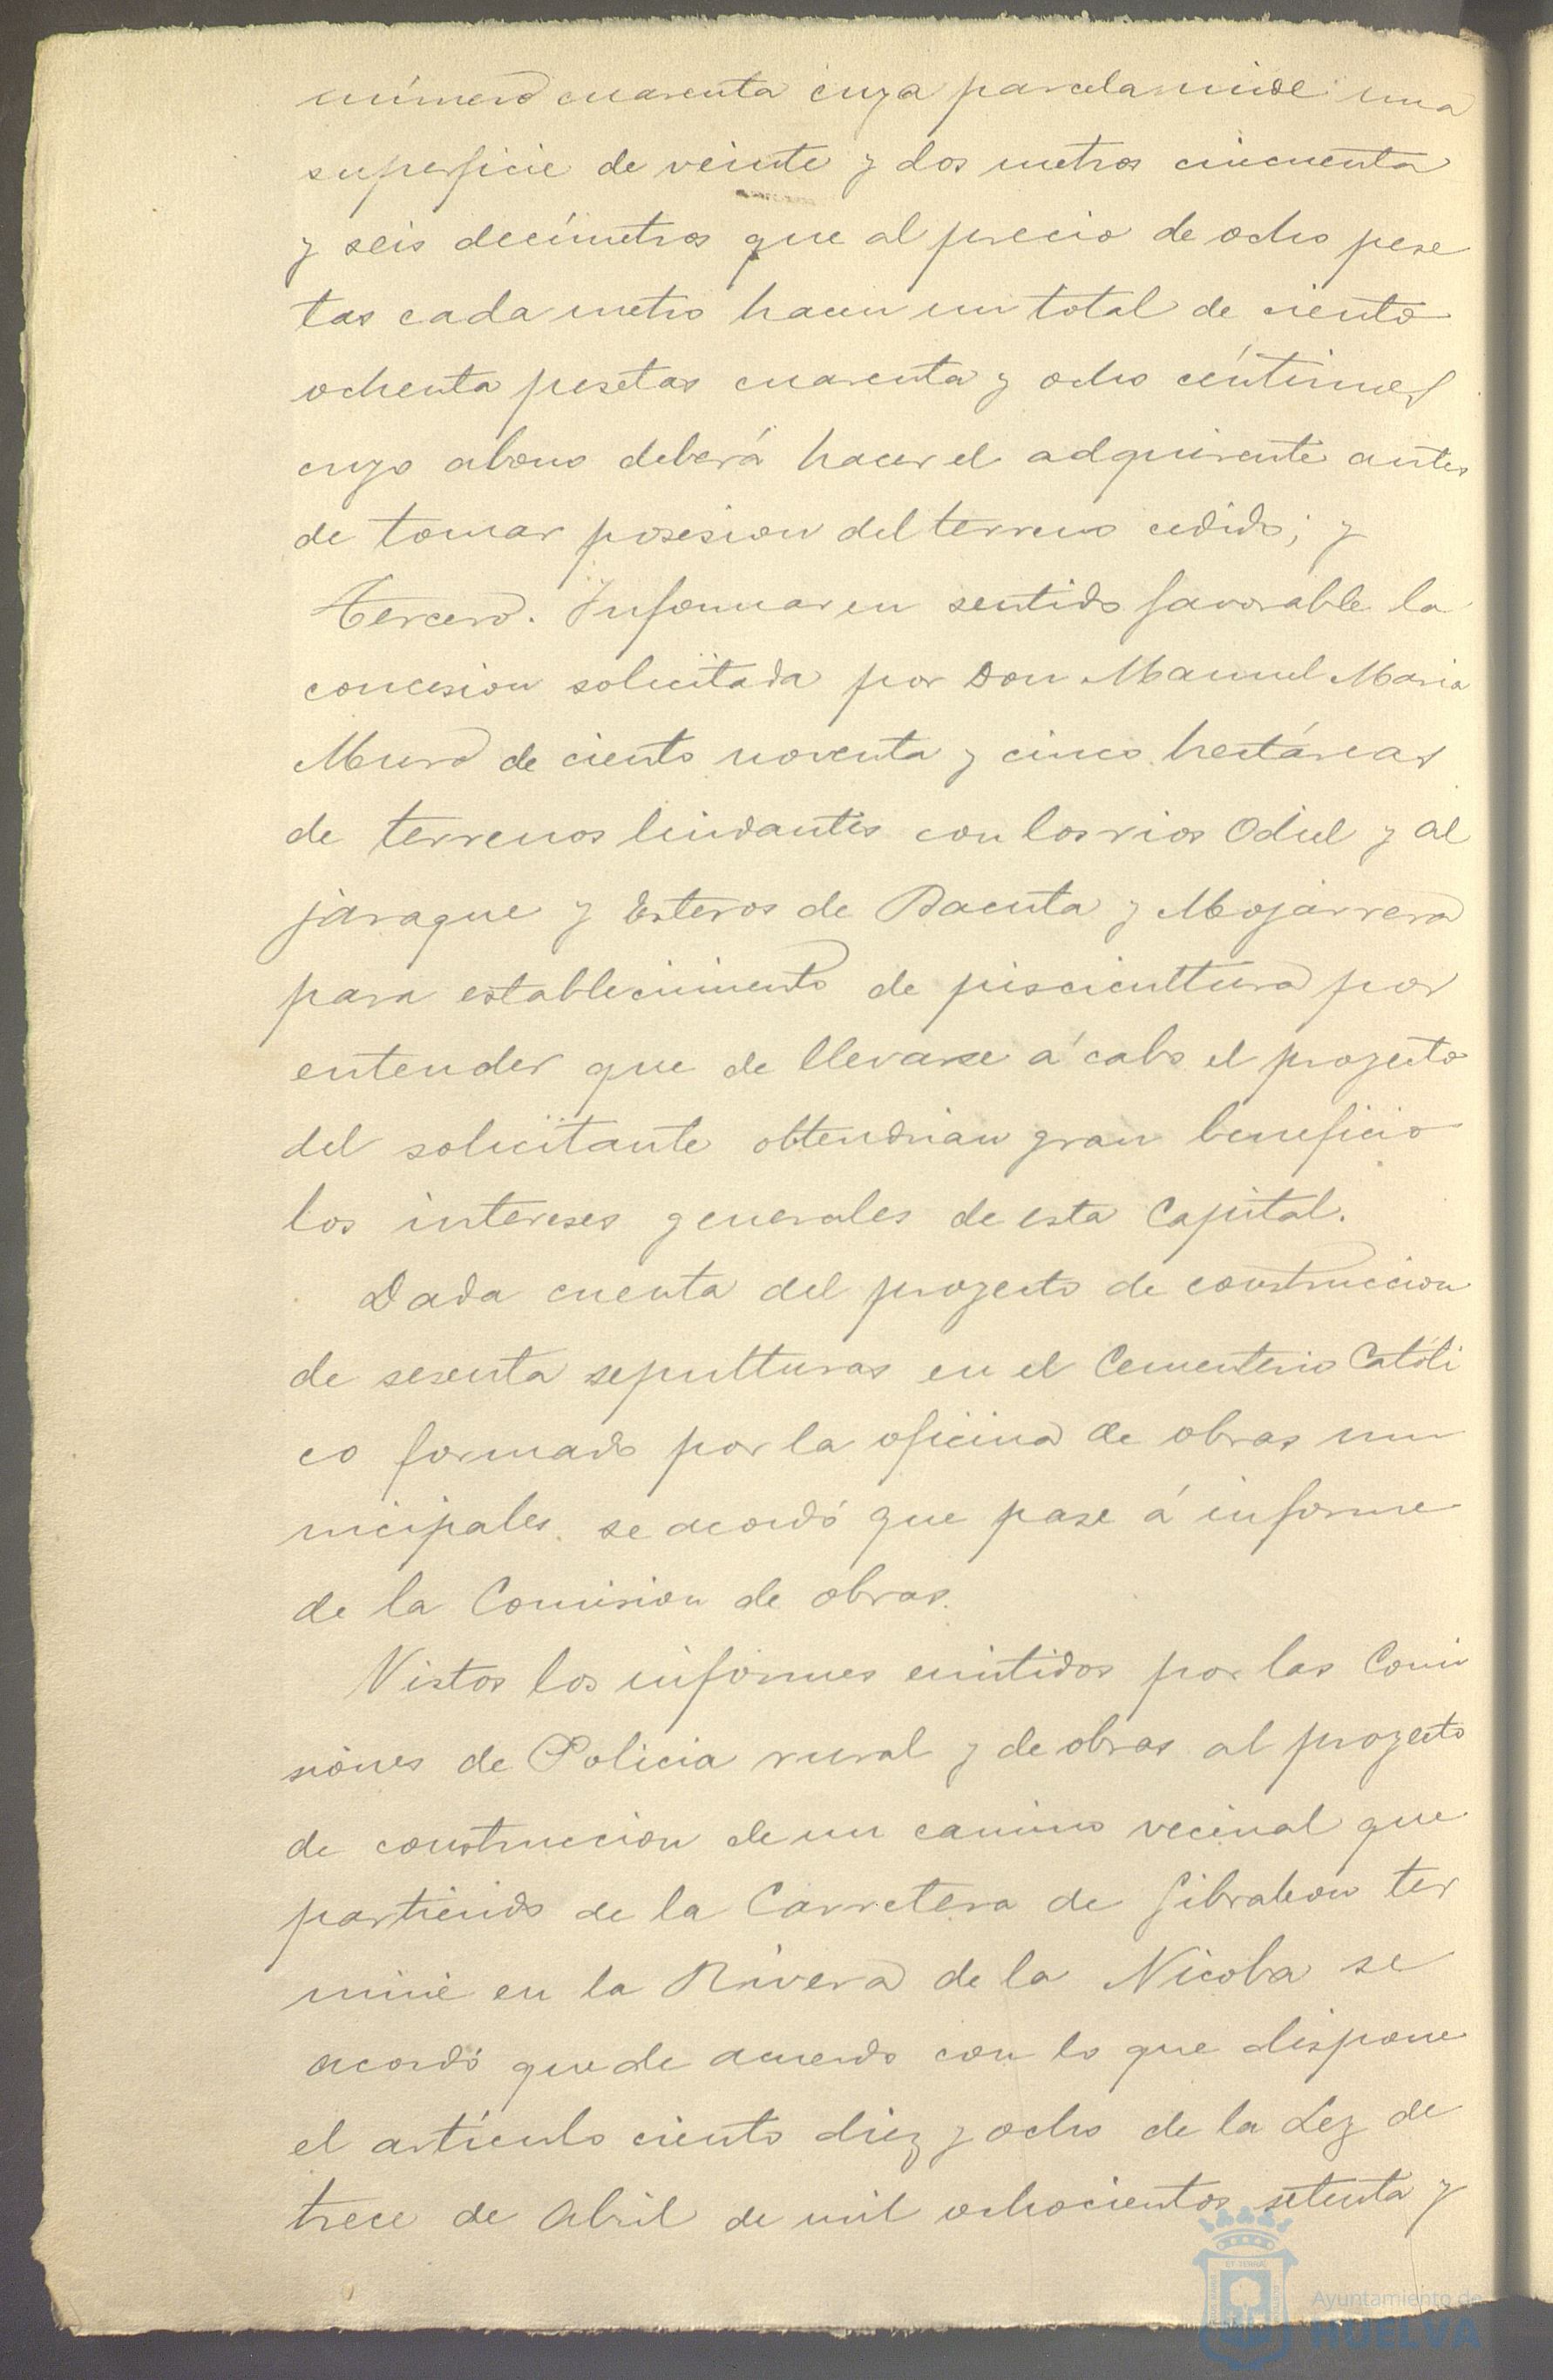 número cuarenta cuya parcela mide una
superficie de veinte y dos metros cincuenta
y seis decímetros que al precio de ocho pese
tas cada metro hacen un total de ciento
ochenta pesetas cuarenta y ocho céntimos
cuyo abono deberá hacer el adquirente antes
de tomar posesion del terreno cedido; y
Tercero. Informar en sentido favorable la
concesion solicitada por Don Manuel Maria
Muro de ciento noventa y cinco hectáreas
de terrenos lindantes con los rios Odiel y al
jaraque y Esteros de Bacuta y Mojarrera
para establecimiento de piscicultura por
entender que de llevarse á cabo el proyecto
del solicitante obtendrian gran beneficio
los intereses generales de esta Capital.
Dada cuenta del proyecto de construccion
de sesenta sepulturas en el Cementerio Católi
co formado por la oficina de obras mu
nicipales se acordó que pase á informe
de la Comision de obras.
Vistos los informes emitidos por las Comi
siones de Policia rural y de obras al proyecto
de construccion de un camino vecinal que
partiendo de la Carretera de Gibraleon ter
mine en la Rivera de la Nicoba se
acordó que de acuerdo con lo que dispone
el artículo ciento diez y ocho de la Ley de
trece de Abril de mil ochocientos setenta y
Ayuntamiento de
HUELVA